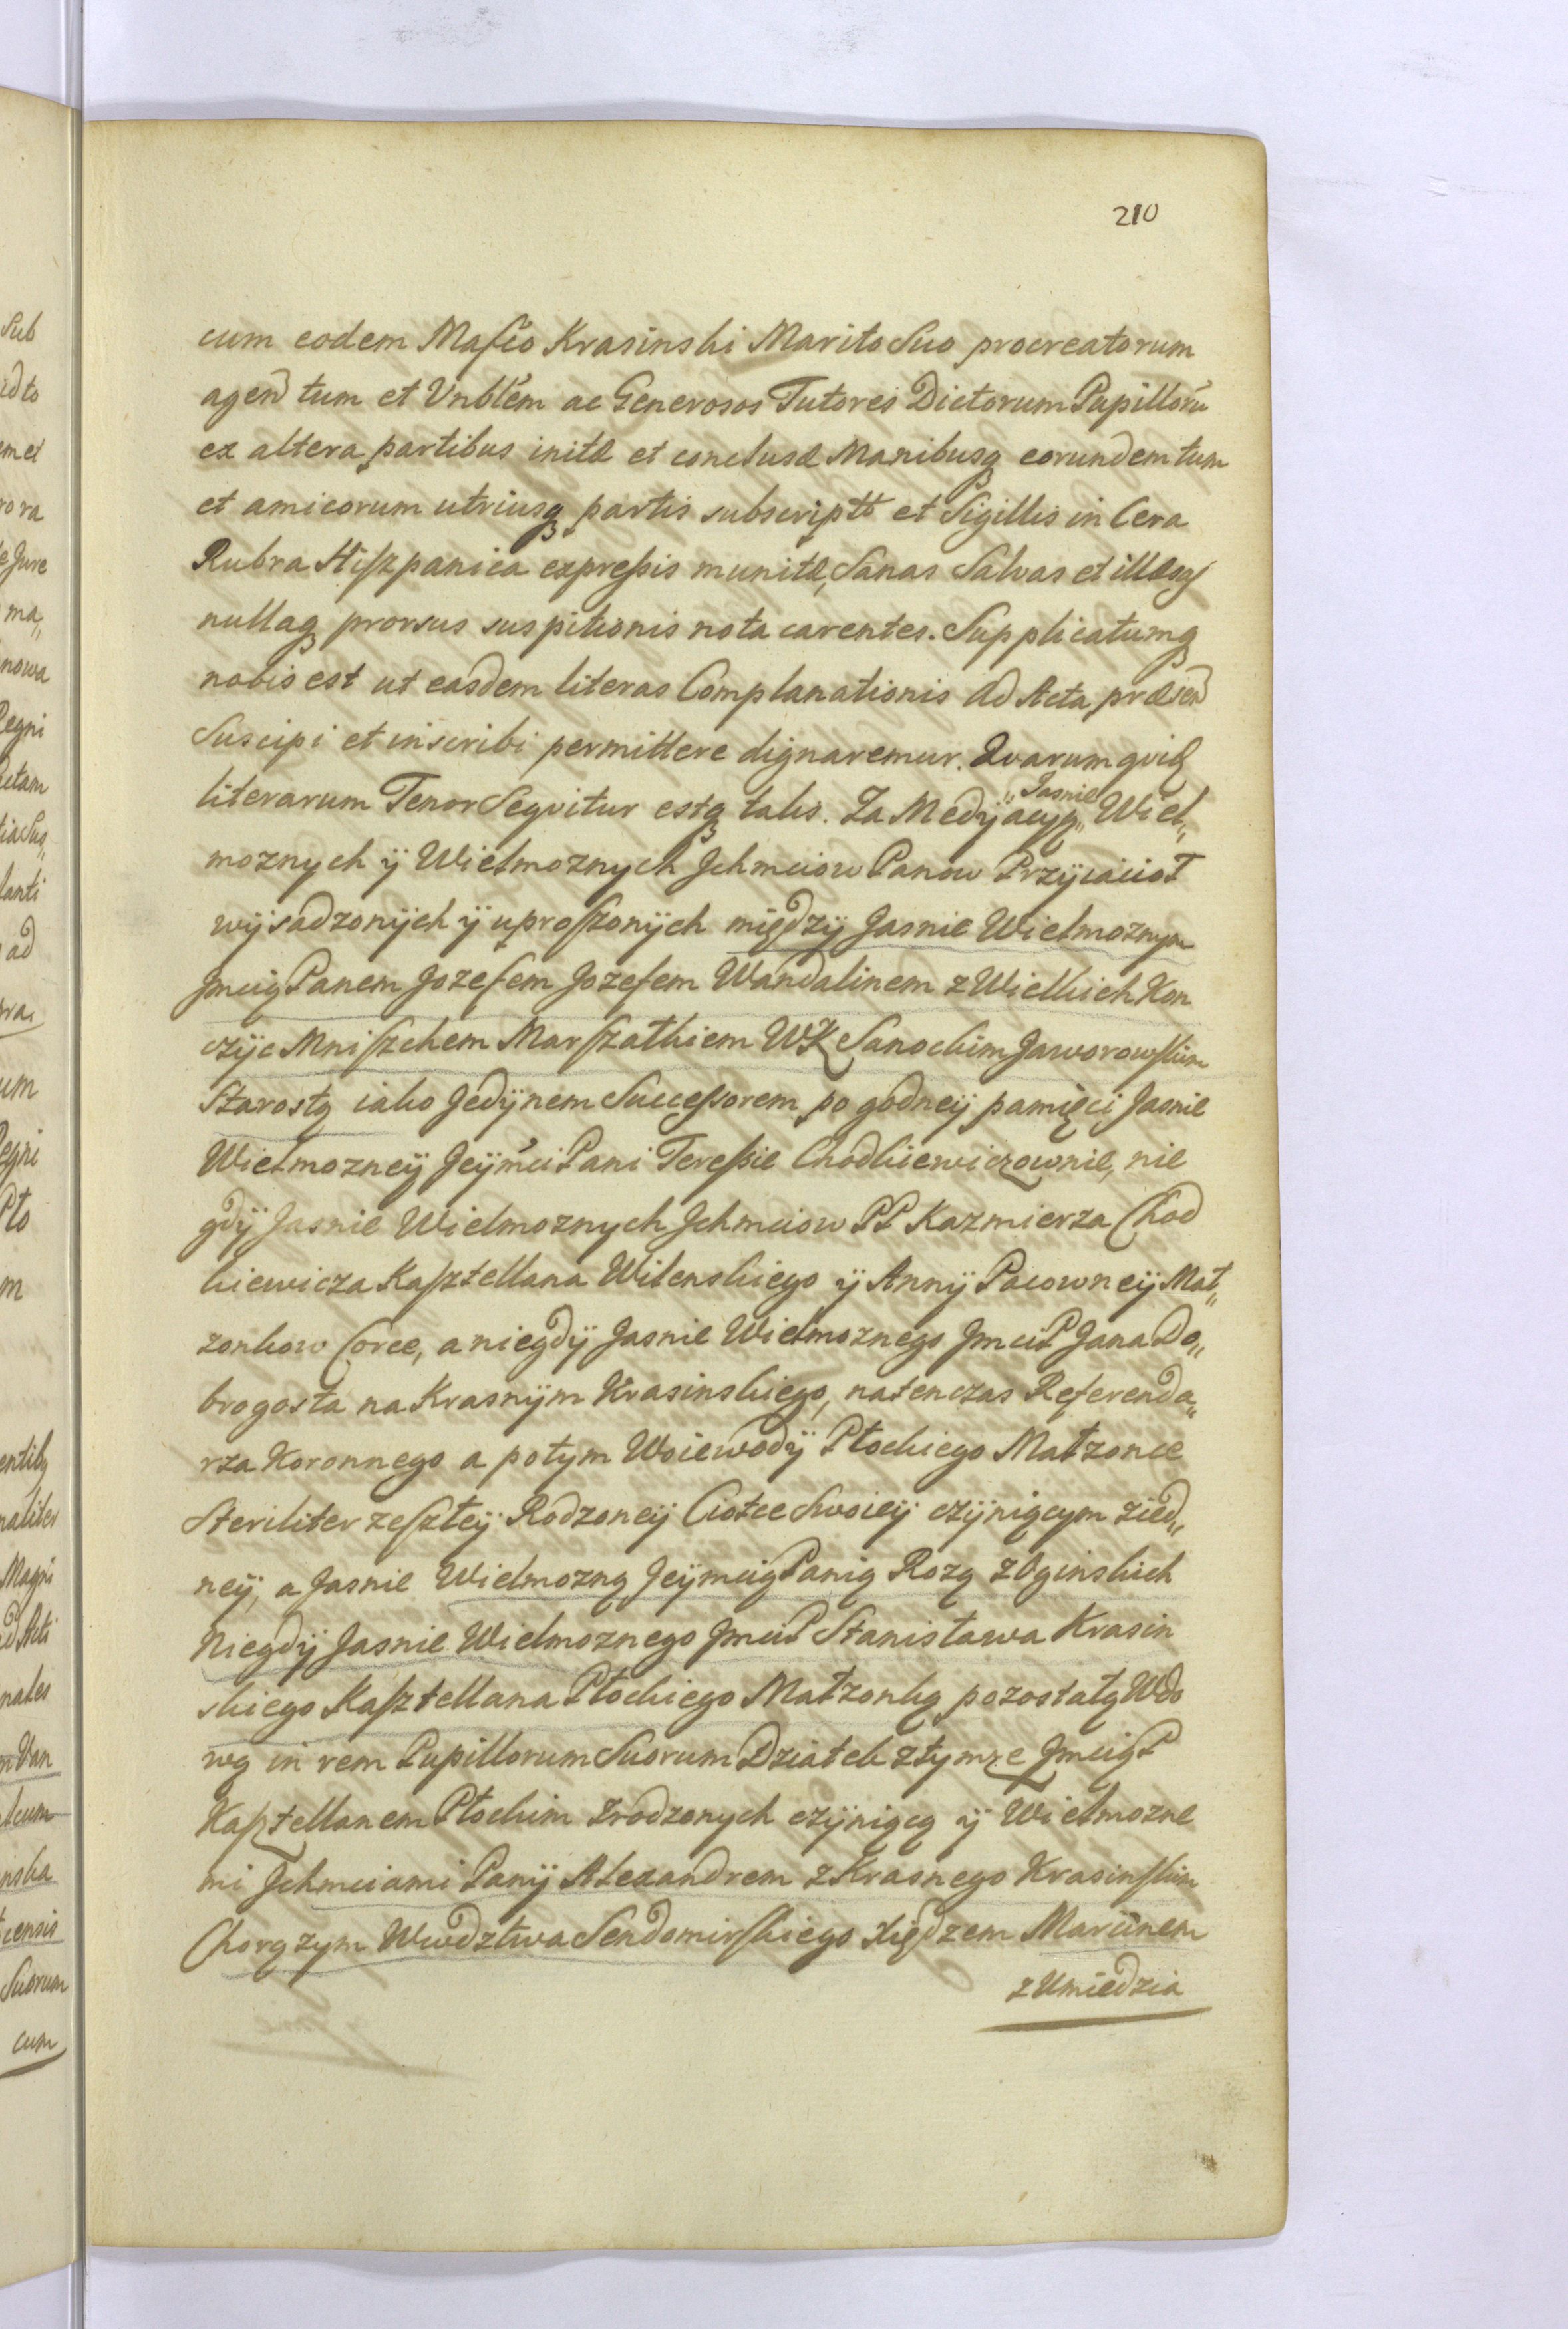 210
cum eodem Mafico Krasinski Marito Suo procreatorum
agen tum et Vnblem ac Generosos Tutores Dictorum Pupilloru
ex altera partibus initæ et conclusæ Manibusq eorundem tum
et amicorum utriusq partis subscriptt et Sigillis in Cera
Rubra Hiſzpanica expreſsis munitæ, Sanas Salvas et illæsas
nullaq prorsus suspitionis nota carentes. Supplicatumq
nobis est ut easdem literas Complanationis ad Acta præsen
Suscipi et inscribi permittere dignaremur. Qvarum qvid
literarum Tenor Seqvitur estq talis. Za Medÿacyą „Jasnie Wiel„
moznych ÿ Wielmoznych Jchmciow Panow Przÿiacioł
wÿsadzonÿch ÿ uproſzonÿch międzÿ Jasnie Wielmoznym
Jmcią Panem Jozefem Jozefem Wandalinem z Wielkich Kon
czÿc Mniſzchem Marſzałkiem WK Sanockim Jaworowſkim
Starostą iako Jedÿnem Succeſsorem po godneÿ pamięci Jasnie
Wielmozneÿ Jeÿmci Pani Tereſsie Chodkiewiczownie, nie
gdÿ Jasnie Wielmoznych Jchmciow PP Kazmierza Chod
kiewicza Kaſztellana Wilenskiego ÿ Annÿ Pacowneÿ Mał„
zonkow Corce, a niegdÿ Jasnie Wielmoznego Jmci P Jana Do„
brogosta na Krasnÿm Krasinskiego, natenczas Referenda„
rza Koronnego a potym Woiewodÿ Płockiego Małzonce
Steriliter zeſzłeÿ Rodzoneÿ Ciotce Swoieÿ czÿniącym z ied„
neÿ, a Jasnie Wielmozną Jeÿmcią Panią Rozą z Oginskich
Niegdÿ Jasnie Wielmoznego Jmci P Stanisława Krasin
skiego Kaſztellana Płockiego Małzonką pozostałą Wdo
wą in rem Pupillorum Suorum Dziatek z tymze Jmcią P
Kaſztellanem Płockim zrodzonych czÿniącą ÿ Wielmozne
mi Jchmciami Panÿ Alexandrem z Krasnego Krasinſkim
Chorązym Wwdztwa Sendomirſkiego Xiędzem Marcinem
z Umiedzia